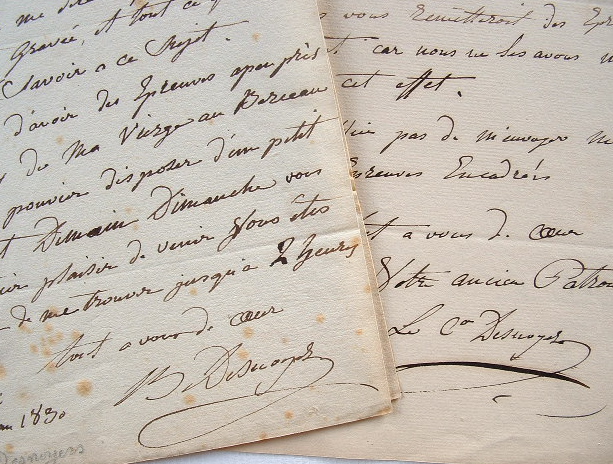 me
gravée, et tout ce
Savoir a ce Sujet.
d'avoir des Epreuves apeuprès
de Ma Vierge au Berceau
pouvoir disposer d'un petit
Demain Dimanche vous
plaisir de venir Vous êtes
de me trouver jusqu'a 2 heures
tout a vous de cœur
B Desnoyers
1830
Desnoyers
vous remettroit des
car nous ne les avons
cet effet.
pas de m'envoyer
Epreuves Encadrées
a vous de cœur
Votre ancien Patron
Le Cn Desnoyers